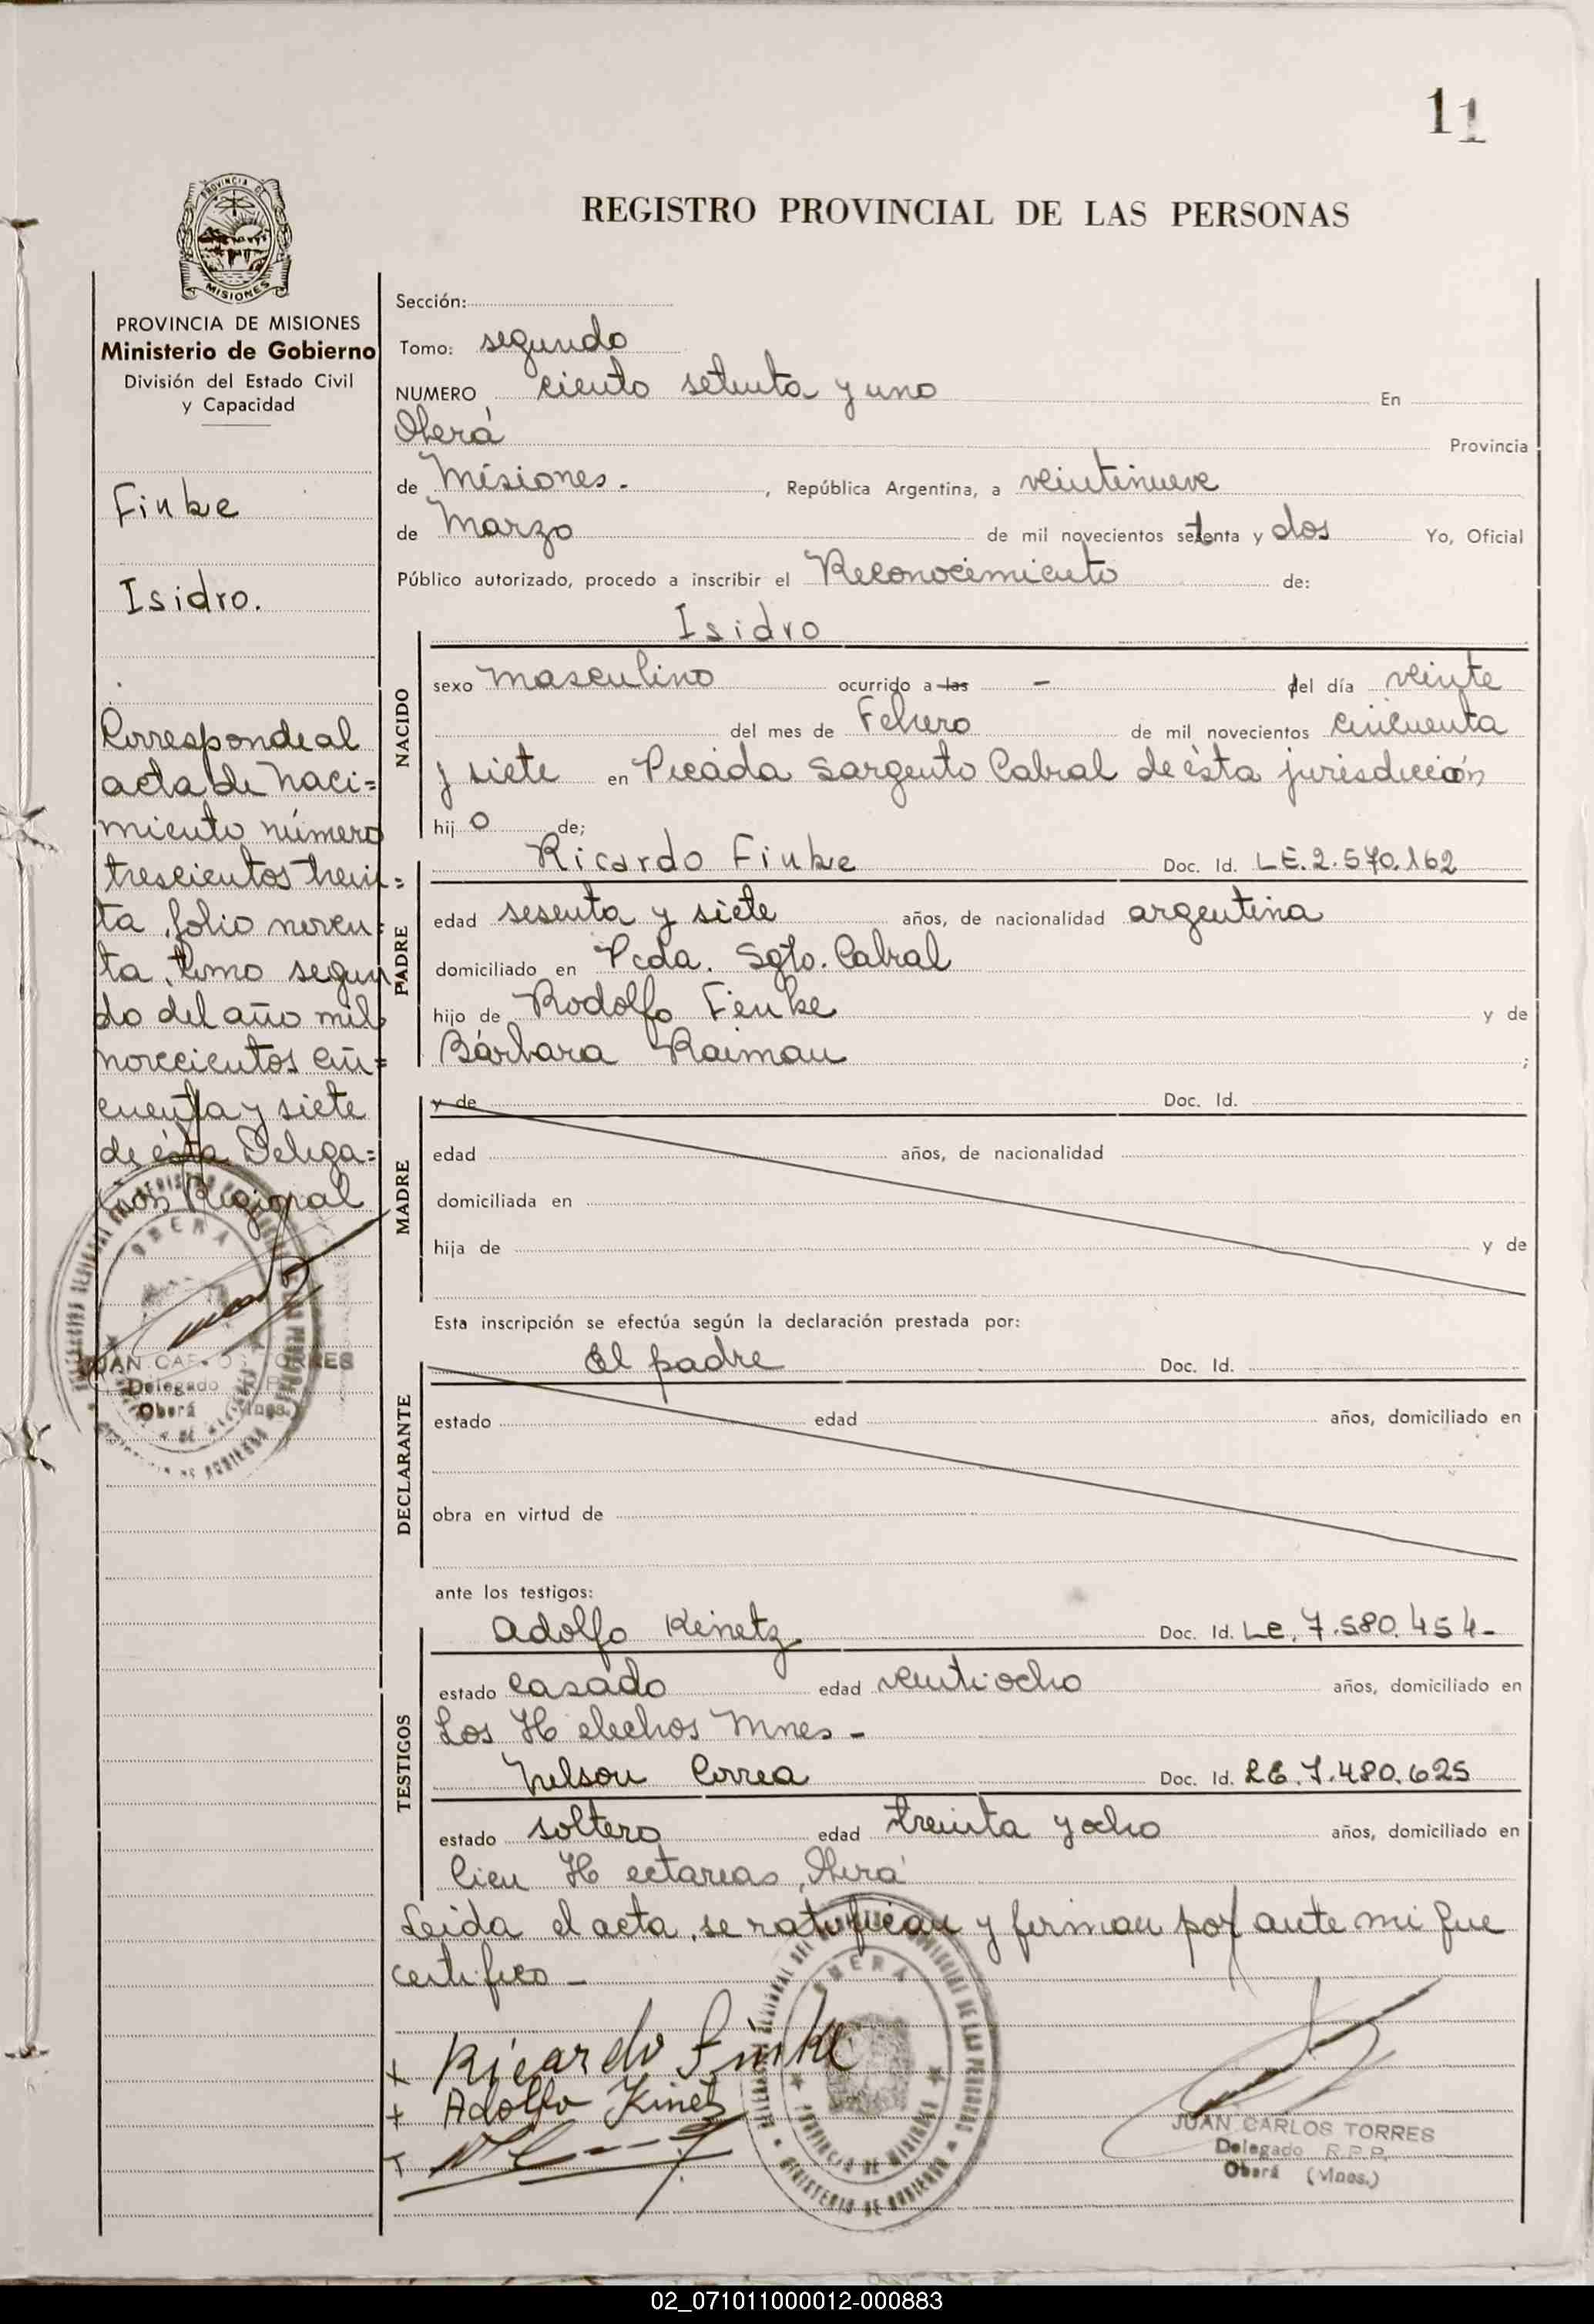 11
PROVINCIA DE
MISIONES
REGISTRO PROVINCIAL DE LAS PERSONAS
PROVINCIA DE MISIONES
Ministerio de Gobierno
División del Estado Civil
y Capacidad
Finke
Isidro.
Corresponde al
acta de naci=
miento número
trescientos trein=
ta, folio noven=
ta, tomo segun
do del año mil
novecientos cin=
cuenta y siete
de ésta Delega=
ción Regional
OBERA
JUAN CARLOS TORRES
Delegado
Oberá (Mnes.)
Sección:
Tomo: segundo
NUMERO ciento setenta y uno En
Oberá Provincia
de Misiones. , República Argentina, a veintinueve
de Marzo de mil novecientos setenta y dos Yo, Oficial
Público autorizado, procedo a inscribir el Reconocimiento de:
NACIDO
Isidro
sexo masculino ocurrido a las - del día veinte
del mes de Febrero de mil novecientos cincuenta
y siete en Picada Sargento Cabral de ésta jurisdicción
hij o de;
PADRE
Ricardo Finke Doc. Id. LE. 2.570.162
edad sesenta y siete años, de nacionalidad argentina
domiciliado en Pcda. Sgto. Cabral
hijo de Rodolfo Finke y de
Bárbara Raiman ;
MADRE
y de Doc. Id.
edad años, de nacionalidad
domiciliada en
hija de y de
Esta inscripción se efectúa según la declaración prestada por:
DECLARANTE
El padre Doc. Id.
estado edad años, domiciliado en
obra en virtud de
ante los testigos:
TESTIGOS
Adolfo Kinetz Doc. Id. Le. 7.580.454-
estado casado edad veintiocho años, domiciliado en
Los Helechos Mnes-
Nelson Correa Doc. Id. LE. 7.480.625
estado soltero edad treinta y ocho años, domiciliado en
Cien Hectareas, Oberá
Leida el acta, se ratifican y firman por ante mi que
certifico-
+ Ricardo Finke
+ Adolfo Kinetz
OBERA
PROVINCIA DE MISIONES
MINISTERIO DE GOBIERNO
JUAN CARLOS TORRES
Delegado R.P.P.
Oberá (Mnes.)
02_071011000012-000883